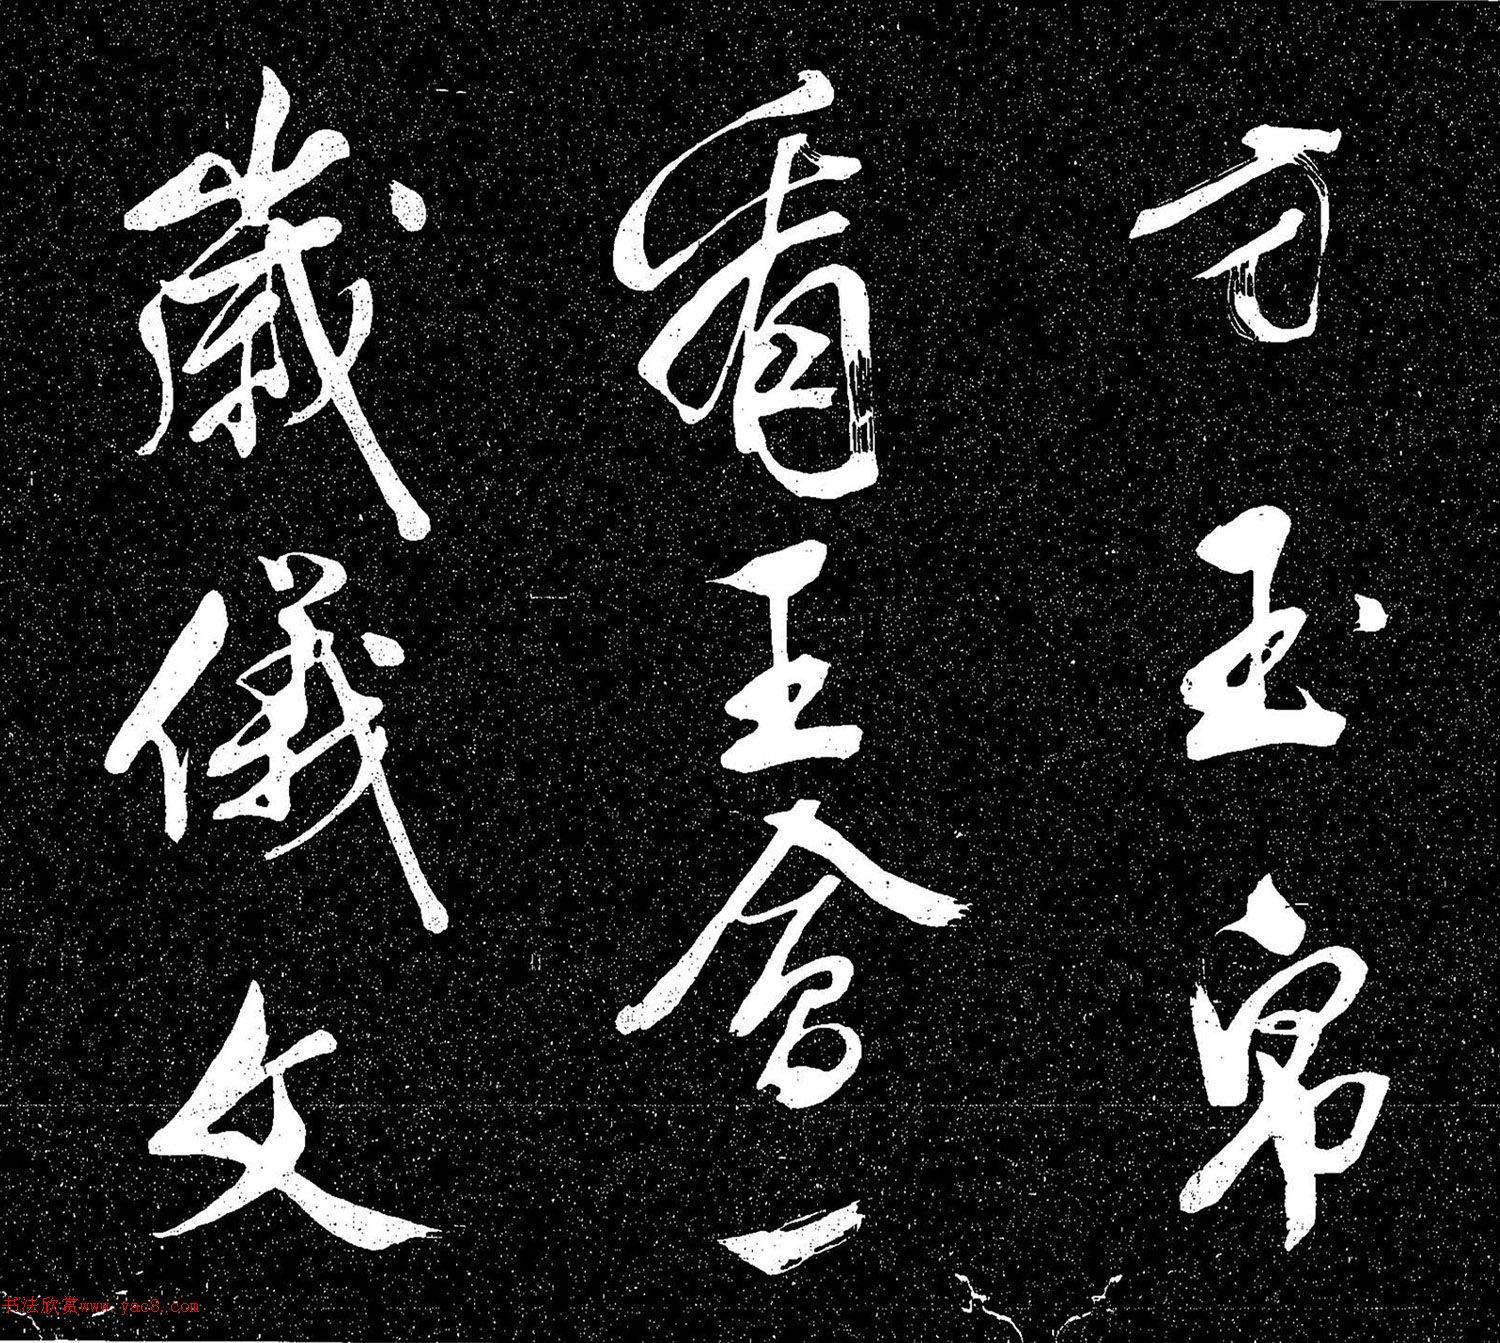 方玉帛
看王會一
歲儀文
书法欣赏www.yac8.com